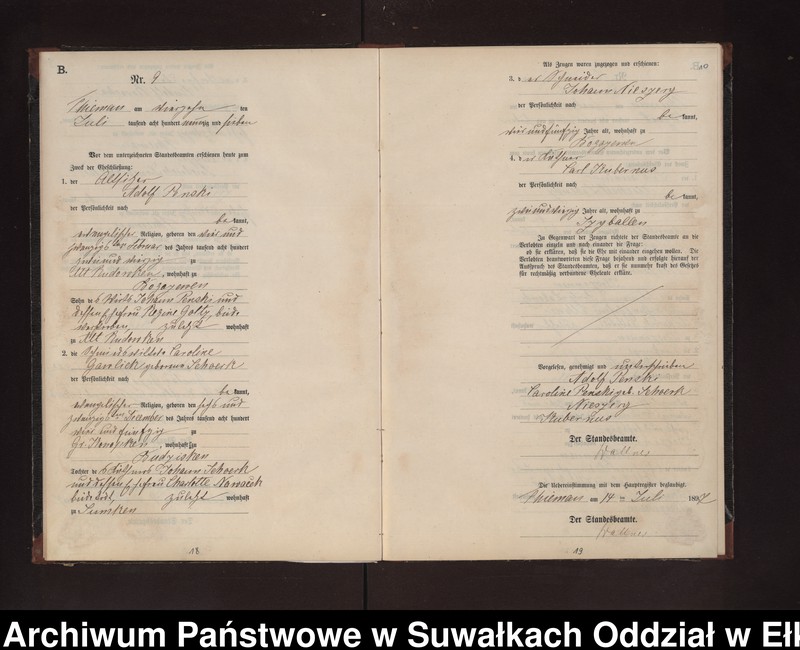 B.
Nr. 9
Thiemau am vierzehn ten
Juli tausend acht hundert neunzig und sieben
Vor dem unterzeichneten Standesbeamten erschienen heute zum
Zweck der Eheschließung:
1. der Altsitzer
Adolf Penski
der Persönlichkeit nach
be kannt,
evangelischer Religion, geboren den vier und
zwanzigsten des Jahres tausend acht hundert
zwei und vierzig zu
Alt Rudowken, wohnhaft zu
Bogazewen
Sohn des Wirths Johann Penski und
dessen Ehefrau Regine, beide
verstorben, zuletzt wohnhaft
zu Alt Rudowken
2. die Caroline
geborene Schoerk
der Persönlichkeit nach
be kannt,
evangelischer Religion, geboren den sechs und
zwanzigsten Dezember des Jahres tausend acht hundert
vier und fünfzig zu
Gr. Konopken, wohnhaft zu
Tochter des Johann Schoerk
und dessen Ehefrau Charlotte
beide todt, zuletzt wohnhaft
zu Sumken
18
Als Zeugen waren zugezogen und erschienen:
3. der Schneider
Johann Nieszery
der Persönlichkeit nach
be kannt,
vier und fünfzig Jahre alt, wohnhaft zu
Bogazewen
4. der Käthner
Carl Kubernus
der Persönlichkeit nach
be kannt,
zwei und vierzig Jahre alt, wohnhaft zu
Przyballen
In Gegenwart der Zeugen richtete der Standesbeamte an die
Verlobten einzeln und nach einander die Frage:
ob sie erklären, daß sie die Ehe mit einander eingehen wollen. Die
Verlobten beantworteten diese Frage bejahend und erfolgte hierauf der
Ausspruch des Standesbeamten, daß er sie nunmehr kraft des Gesetzes
für rechtmäßig verbundene Eheleute erkläre.
Vorgelesen, genehmigt und unterschrieben
Adolf Penski
Caroline Penski geb. Schoerk
Nieszery
Kubernus
Der Standesbeamte.
Die Uebereinstimmung mit dem Hauptregister beglaubigt.
Thiemau am 14 ten Juli 1897
Der Standesbeamte.
19
Archiwum Państwowe w Suwałkach Oddział w Ełk